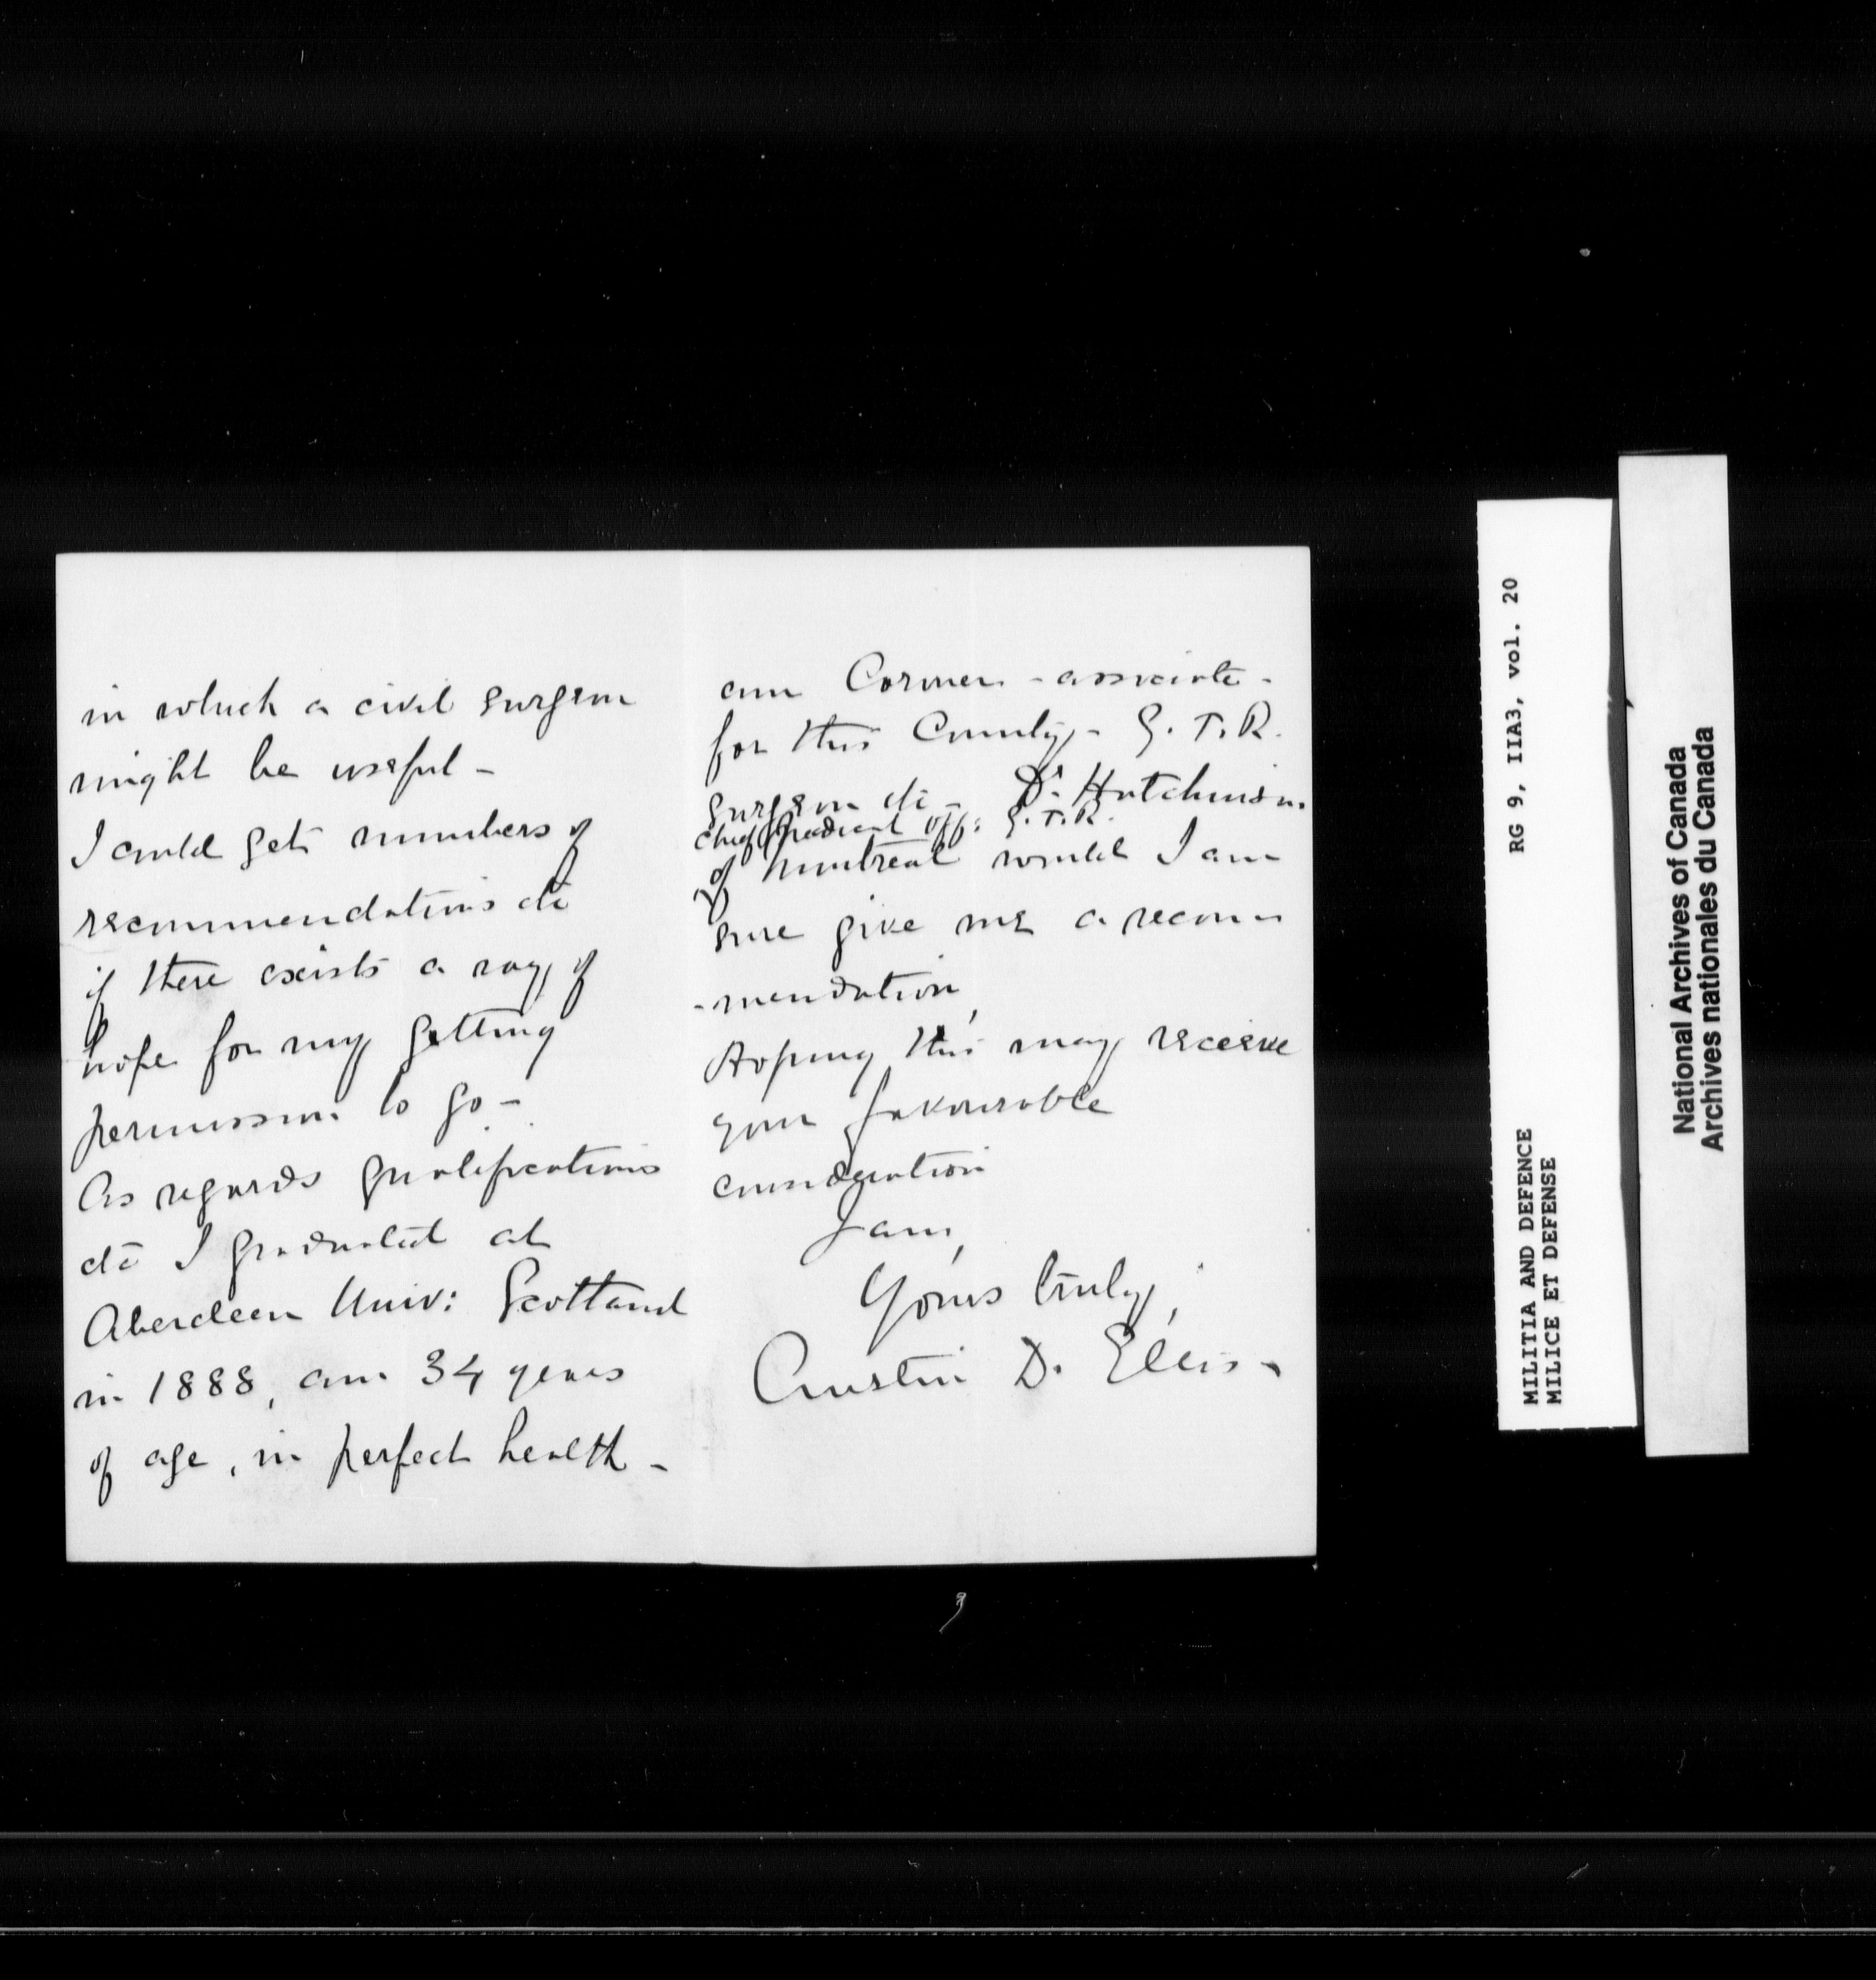 in which a civil surgeon
might be useful -
I could get numbers of
recommendations etc
if there exists a ray of
hope for my getting
permission to go -
As regards qualifications
etc I graduated at
Aberdeen Univ: Scotland
in 1888, am 34 years
of age, in perfect health -
am Coroner - associate -
for this County - G. T. R.
surgeon etc - Dr. Hutchinson
chief medical off: G. T. R.
of Montreal would I am
sure give me a recom
-mendation,
Hoping this may receive
your favourable
consideration
I am,
Yours truly,
Austin D. Ellis -
RG 9, IIA3, vol. 20
MILITIA AND DEFENCE
MILICE ET DEFENSE
National Archives of Canada
Archives nationales du Canada